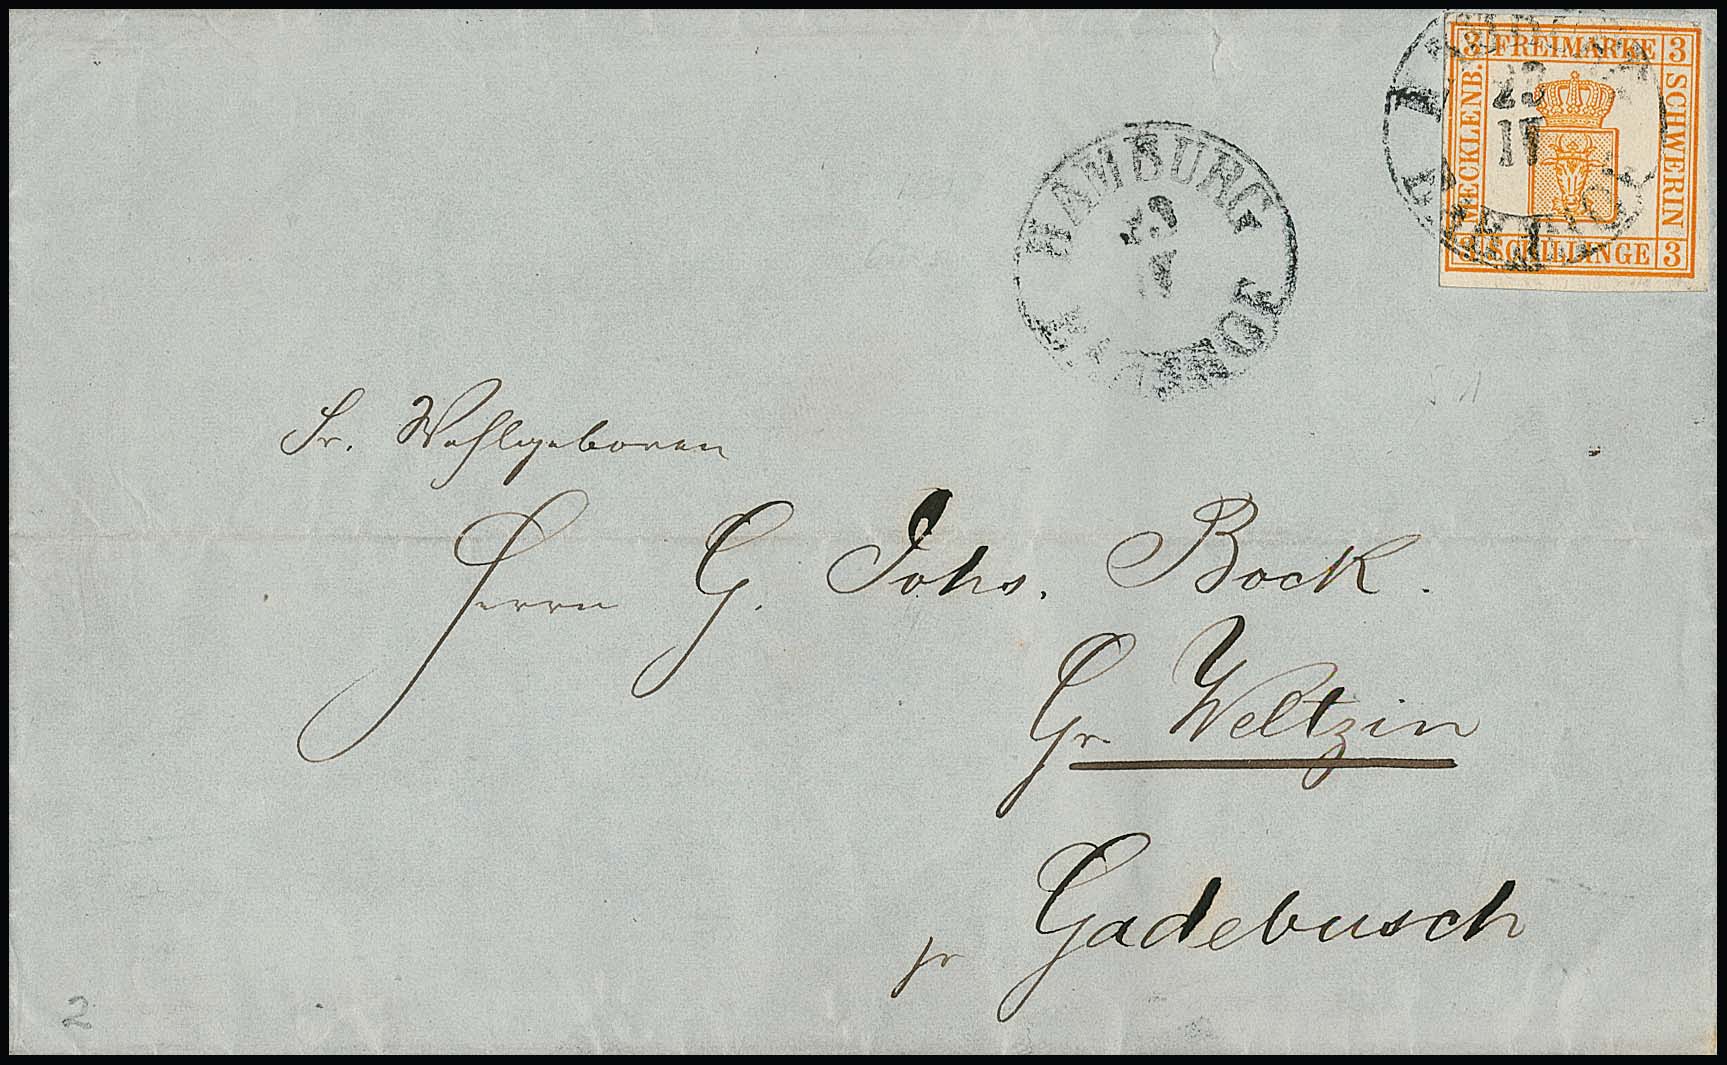 3 FREIMARKE 3
MECKLENB.
SCHWERIN
3 SCHILLINGE 3
23
HAMBURG
Sr. Wohlgeboren
Herrn G. Johs. Bock.
Gr. Weltzin
pr Gadebusch
2